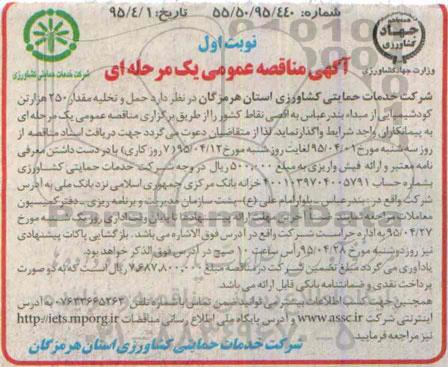 شماره: ۵۵/۵۰/۹۵/۴۴۰ تاریخ: ۹۵/۴/۱
جهاد کشاورزی
وزارت جهاد کشاورزی
شرکت خدمات حمایتی کشاورزی
نوبت اول
آگهی مناقصه عمومی یک مرحله ای
شرکت خدمات حمایتی کشاورزی استان هرمزگان در نظر دارد حمل و تخلیه مقدار ۲۵۰ هزار تن
کود شیمیایی از مبداء بندرعباس به اقصی نقاط کشور را از طریق برگزاری مناقصه عمومی یک مرحله ای
به پیمانکاران واجد شرایط واگذار نماید. لذا از متقاضیان دعوت می گردد جهت دریافت اسناد مناقصه از
روز سه شنبه مورخ ۹۵/۰۴/۰۱ لغایت روز شنبه مورخ ۹۵/۰۴/۱۲ (۷ روز کاری) با در دست داشتن معرفی
نامه معتبر و ارائه فیش واریزی به مبلغ ۵۰۰.۰۰۰ ریال در وجه شرکت خدمات حمایتی کشاورزی
بشماره حساب ۴۰۰۱۰۳۹۷۰۴۰۰۵۷۹۱ خزانه بانک مرکزی جمهوری اسلامی نزد بانک ملی به آدرس
شرکت واقع در: بندرعباس - بلوار امام علی (ع) - پشت سازمان مدیریت و برنامه ریزی - دفتر کمیسیون
معاملات مراجعه نمایند. ضمناً آخرین مهلت ارائه پیشنهادها تا پایان وقت اداری روز یک شنبه مورخ
۹۵/۰۴/۲۷ به اداره حراست شرکت واقع در آدرس فوق الاشاره می باشد. بازگشایی پاکات پیشنهادی
نیز روز دوشنبه مورخ ۹۵/۰۴/۲۸ رأس ساعت ۱۰ صبح در آدرس فوق الذکر خواهد بود.
یادآوری می گردد مبلغ تضمین شرکت در مناقصه مبلغ ۷.۶۸۷.۸۰۰.۰۰۰ ریال است که به دو صورت
پرداخت نقدی و ضمانتنامه بانکی قابل ارائه می باشد.
همچنین جهت کسب اطلاعات بیشتر می توانید ضمن تماس با شماره تلفن ۰۷۶۳۳۶۶۵۲۶۳ به آدرس
اینترنتی شرکت www.assc.ir و آدرس پایگاه ملی اطلاع رسانی مناقصات http://iets.mporg.ir
نیز مراجعه فرمایید.
شرکت خدمات حمایتی کشاورزی استان هرمزگان